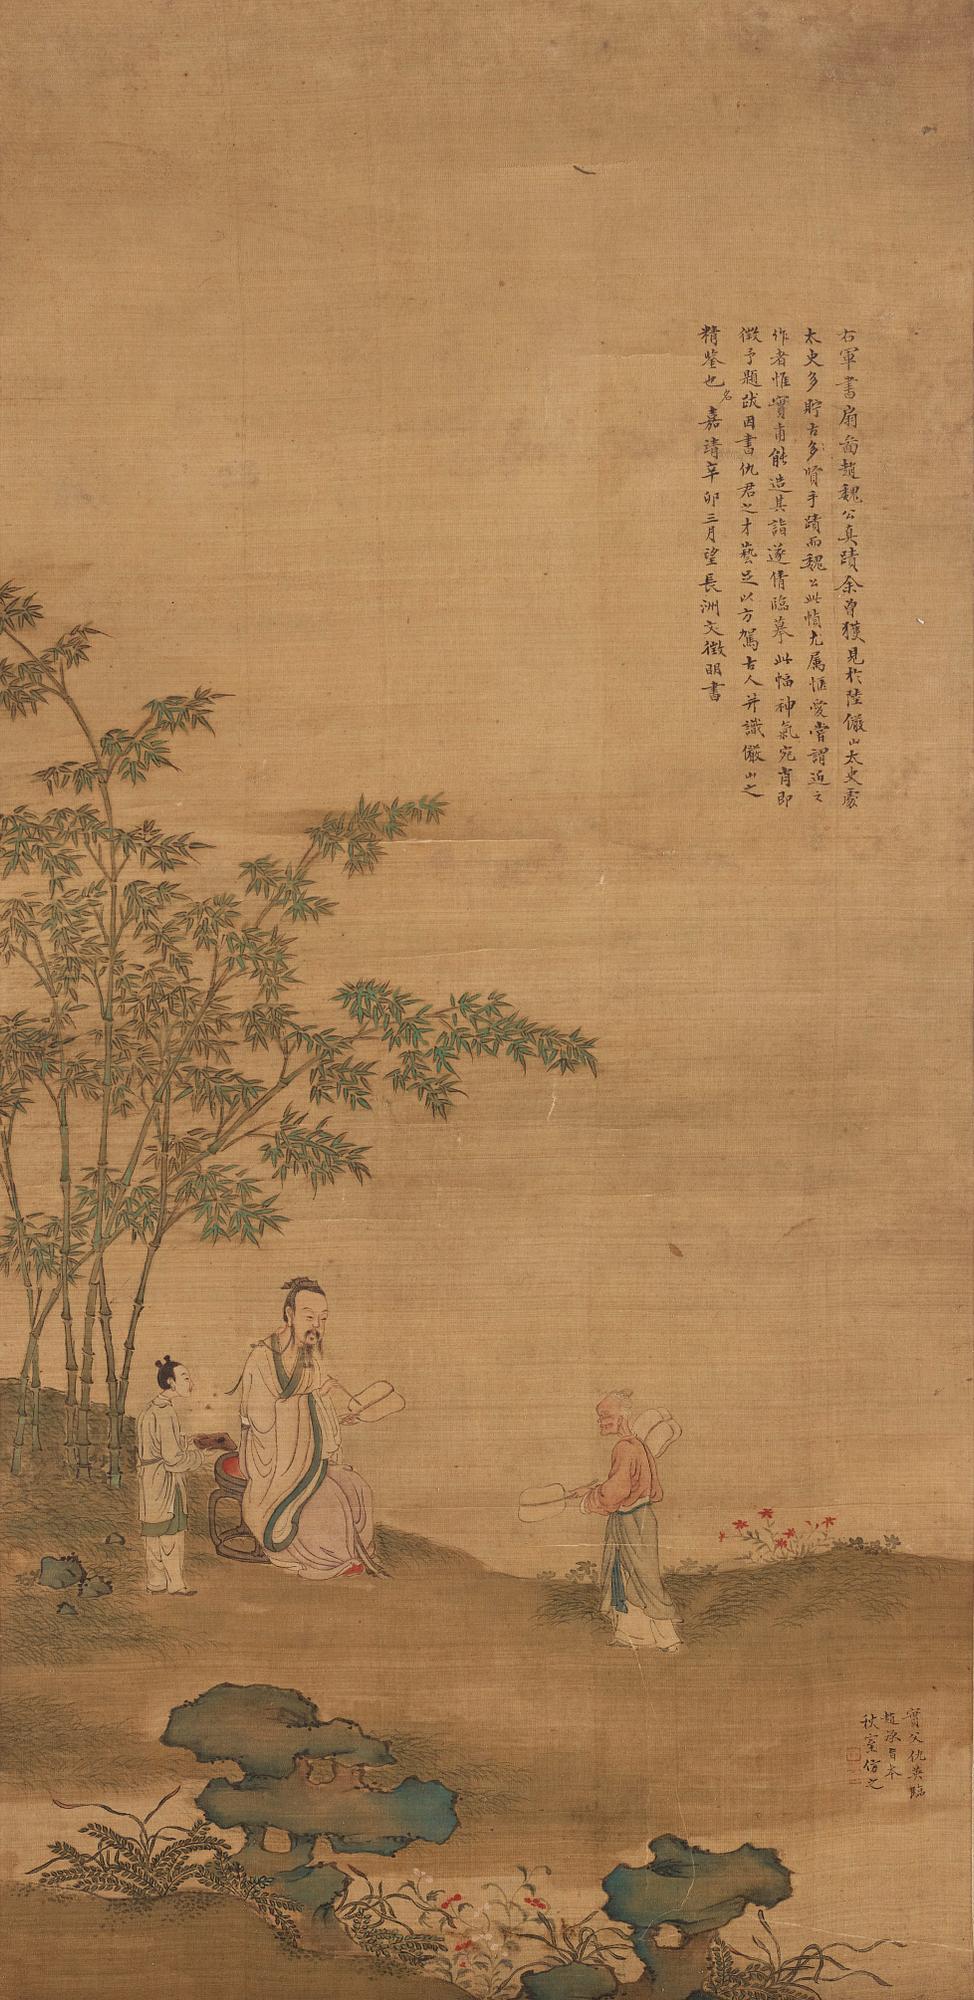 右軍書扇啚趙魏公真蹟余曾獲見於陸儼山太史處
太史多貯古多賢手蹟而魏公此幀尤属惬愛嘗謂近之
作者惟實甫能造其詣遂倩臨摹此幅神氣宛肖即
徴予題跋因書仇君之才藝足以方駕古人并識儼山之
精鉴也 嘉靖辛卯三月望長洲文徴明書
名
實父仇英臨
趙承旨本
秋室仿之